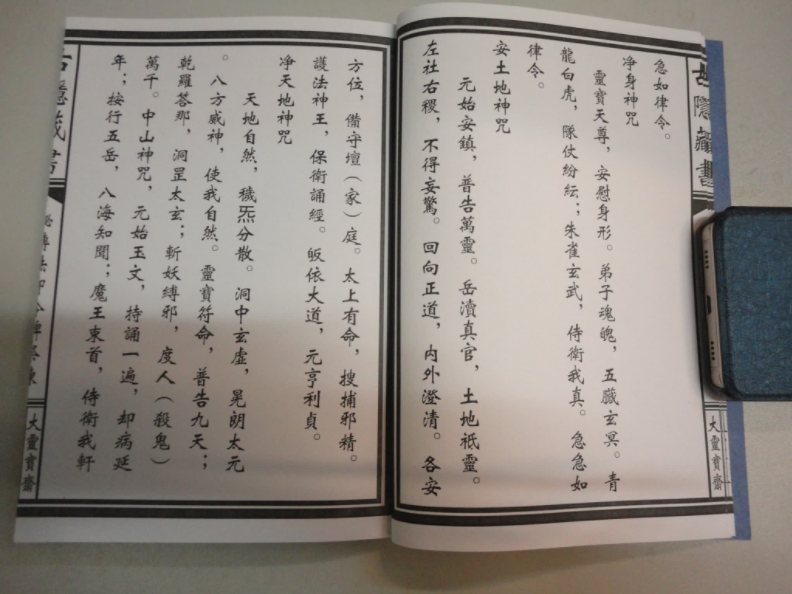 急如律令。
净身神咒
靈寶天尊，安慰身形。弟子魂魄，五臟玄冥。青
龍白虎，隊仗紛紜；朱雀玄武，侍衛我真。急急如
律令。
安土地神咒
元始安鎮，普告萬靈。岳瀆真官，土地祇靈。
左社右稷，不得妄驚。回向正道，內外澄清。各安
大靈寶齋
方位，備守壇（家）庭。太上有命，搜捕邪精。
護法神王，保衛誦經。皈依大道，元亨利貞。
净天地神咒
天地自然，穢炁分散。洞中玄虛，晃朗太元
。八方威神，使我自然。靈寶符命，普告九天；
乾羅答那，洞罡太玄；斬妖縛邪，度人（殺鬼）
萬千。中山神咒，元始玉文，持誦一遍，却病延
年；按行五岳，八海知聞；魔王束首，侍衛我軒
大靈寶齋